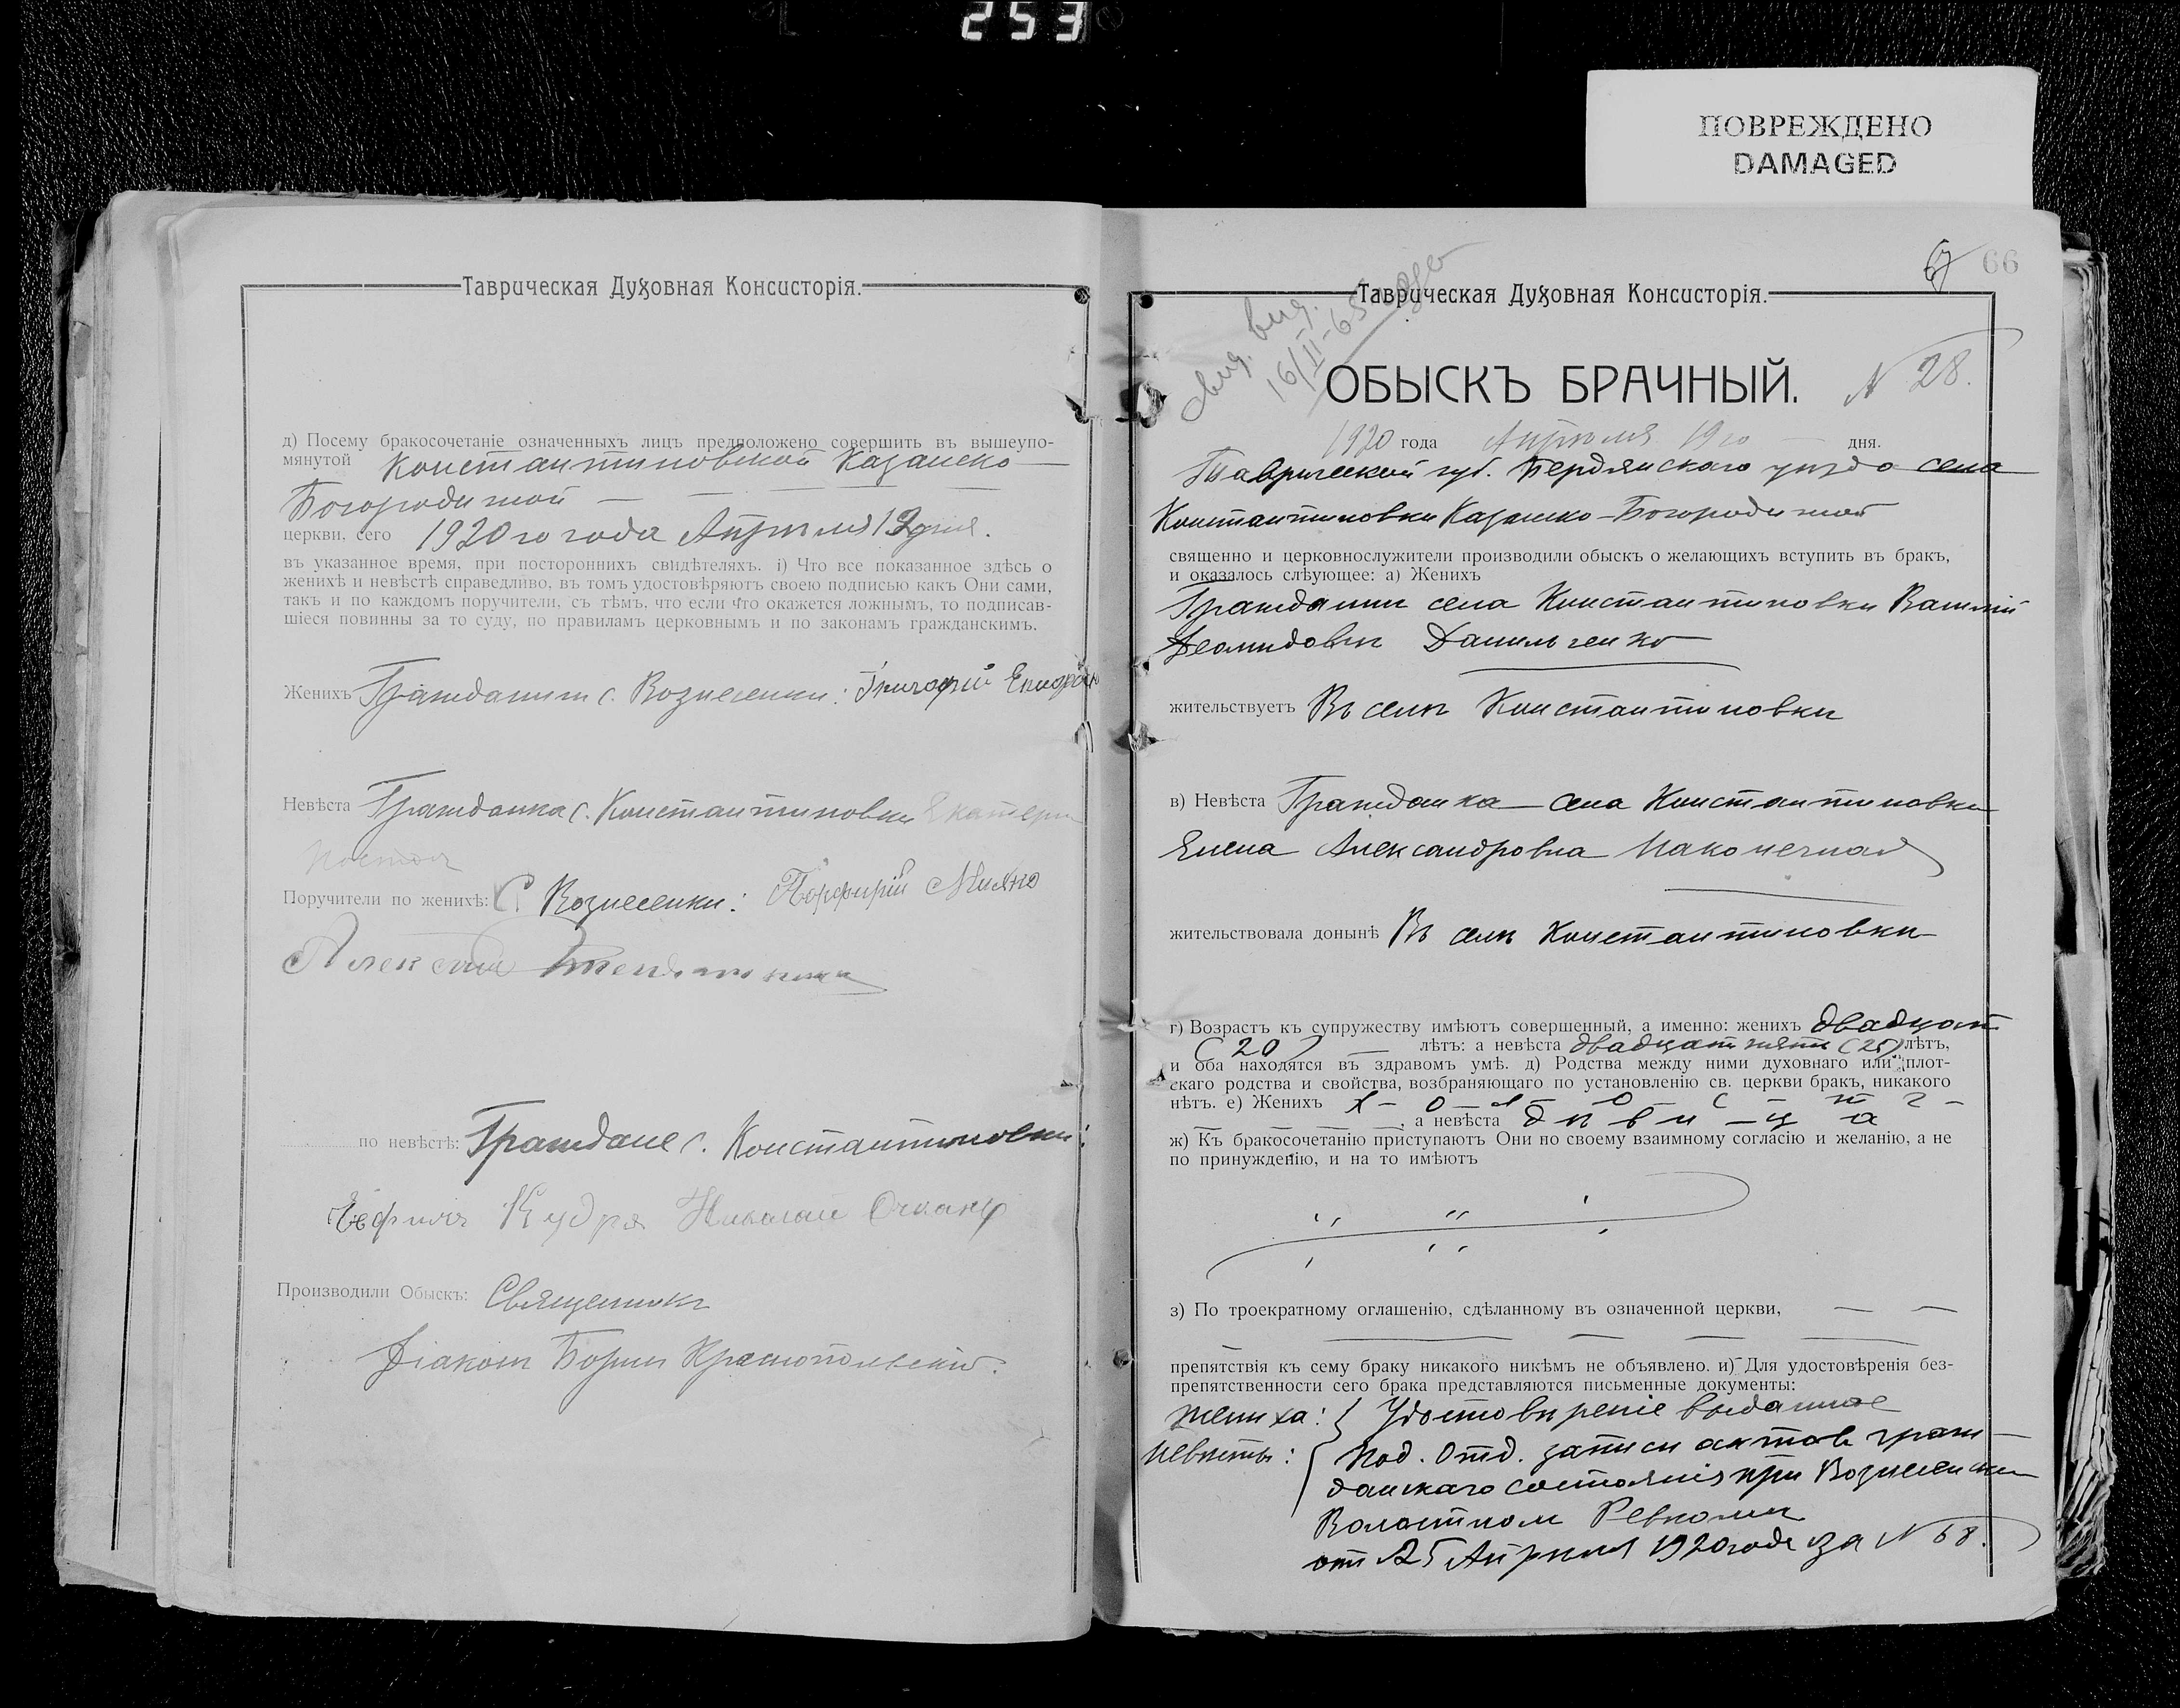 253
ПОВРЕЖДЕНО
DAMAGED
Таврическая Духовная Консисторія.
д) Посему бракосочетаніе означенныхъ лицъ предположено совершить въ вышеупо-
мянутой Константиновской Казанско-
Богородичной
церкви, сего 1920го года Апрѣля 19 дня.
въ указанное время, при постороннихъ свидѣтеляхъ. і) Что все показанное здѣсь о
женихѣ и невѣстѣ справедливо, въ томъ удостовѣряютъ своею подписью какъ Они сами,
такъ и по каждомъ поручители, съ тѣмъ, что если что окажется ложнымъ, то подписав-
шіеся повинны за то суду, по правиламъ церковнымъ и по законамъ гражданскимъ.
Женихъ Гражданинъ с. Вознесенки: Григорій
Невѣста Гражданка с. Константиновки Екатери
Поручители по женихѣ: С. Вознесенки: Порфирій
Александръ
по невѣстѣ: Граждане с. Константиновки:
Ефимъ Кудря Николай
Производили Обыскъ: Священникъ
Діаконъ Борисъ Краснопольскій.
67 66
Таврическая Духовная Консисторія.
16/II-65
ОБЫСКЪ БРАЧНЫЙ. N 28.
1920 года Апрѣля 19го дня.
Таврической губ. Бердянскаго уѣзда села
Константиновки Казанско-Богородичной
священно и церковнослужители производили обыскъ о желающихъ вступить въ бракъ,
и оказалось слѣующее: а) Женихъ
Гражданинъ села Константиновки Василій
Деомидовъ Данильченко
жительствуетъ Въ селѣ Константиновки
в) Невѣста Гражданка села Константиновки
Елена Александровна Наконечная
жительствовала донынѣ Въ селѣ Константиновки
г) Возрастъ къ супружеству имѣютъ совершенный, а именно: женихъ двадцать
(20) лѣтъ: а невѣста двадцать пять (25) лѣтъ,
и оба находятся въ здравомъ умѣ. д) Родства между ними духовнаго или плот-
скаго родства и свойства, возбраняющаго по установленію св. церкви бракъ, никакого
нѣтъ. е) Женихъ х - о - л - о - с - т - ъ -
, а невѣста д ѣ в и - ц а
ж) Къ бракосочетанію приступаютъ Они по своему взаимному согласію и желанію, а не
по принужденію, и на то имѣютъ
з) По троекратному оглашенію, сдѣланному въ означенной церкви,
препятствія къ сему браку никакого никѣмъ не объявлено. и) Для удостовѣренія без-
препятственности сего брака представляются письменные документы:
жениха: } Удостовѣреніе выданное
невѣсты: { Под. Отд. записи актовъ граж-
данскаго состоянія при Вознесенском
Волостном Ревкоми
отъ 25 Апрѣля 1920 года за N 68.